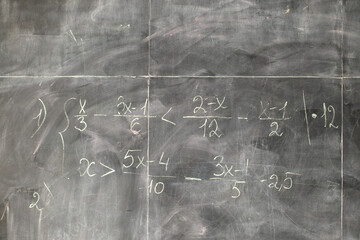 1) { x/3 - (3x-1)/6 < (2-x)/12 - (x-1)/2 | · 12
x > (5x-4)/10 - (3x-1)/5 - 2,5
2)